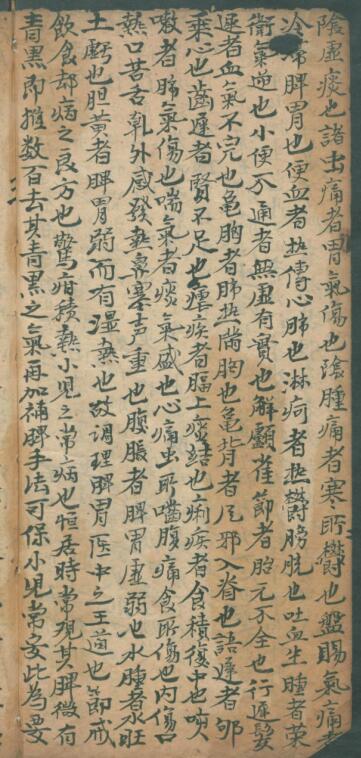 陰虛痰也諸虫痛者胃氣傷也陰腫痛者寒所欝也盤腸氣痛者
冷歸脾胃也便血者热傳心肺也淋疴者热欝膀胱也吐血生腫者荣
衛氣逆也小便不通者無虛有實也解顱崔節者胎元不全也行遲髮
遲者血氣不完也龜胸者肺热滿胸也龜背者風邪入脊也語遲者邪
乘心也齒遲者腎不足也瘧疾者膈上痰結也痢疾者食積復中也咳
嗽者肺氣傷也喘氣者痰氣盛也心痛虫所嚙腹痛食所傷也内傷口
熱口苦舌乳外感發热鼻塞声重也腹脹者脾胃虛弱也水腫者水旺
土虧也胆黄者脾胃弱而有湿熱也故调理脾胃医中之王道也節戒
飲食却病之良方也驚疳積熱小兒之常病也恒居時常观其脾微有
青黑即推数百去其青黑之氣再加補脾手法可保小兒常安此為要